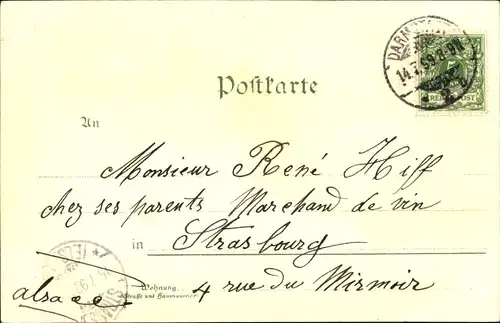 DARMSTADT
14.7.99.8-9N
REICHSPOST
Postkarte
An
Monsieur René Hiff
chez ses parents Marchand de vin
in Strasbourg
Wohnung
(Straße und Hausnummer)
4 rue du Mirmoir
alsace